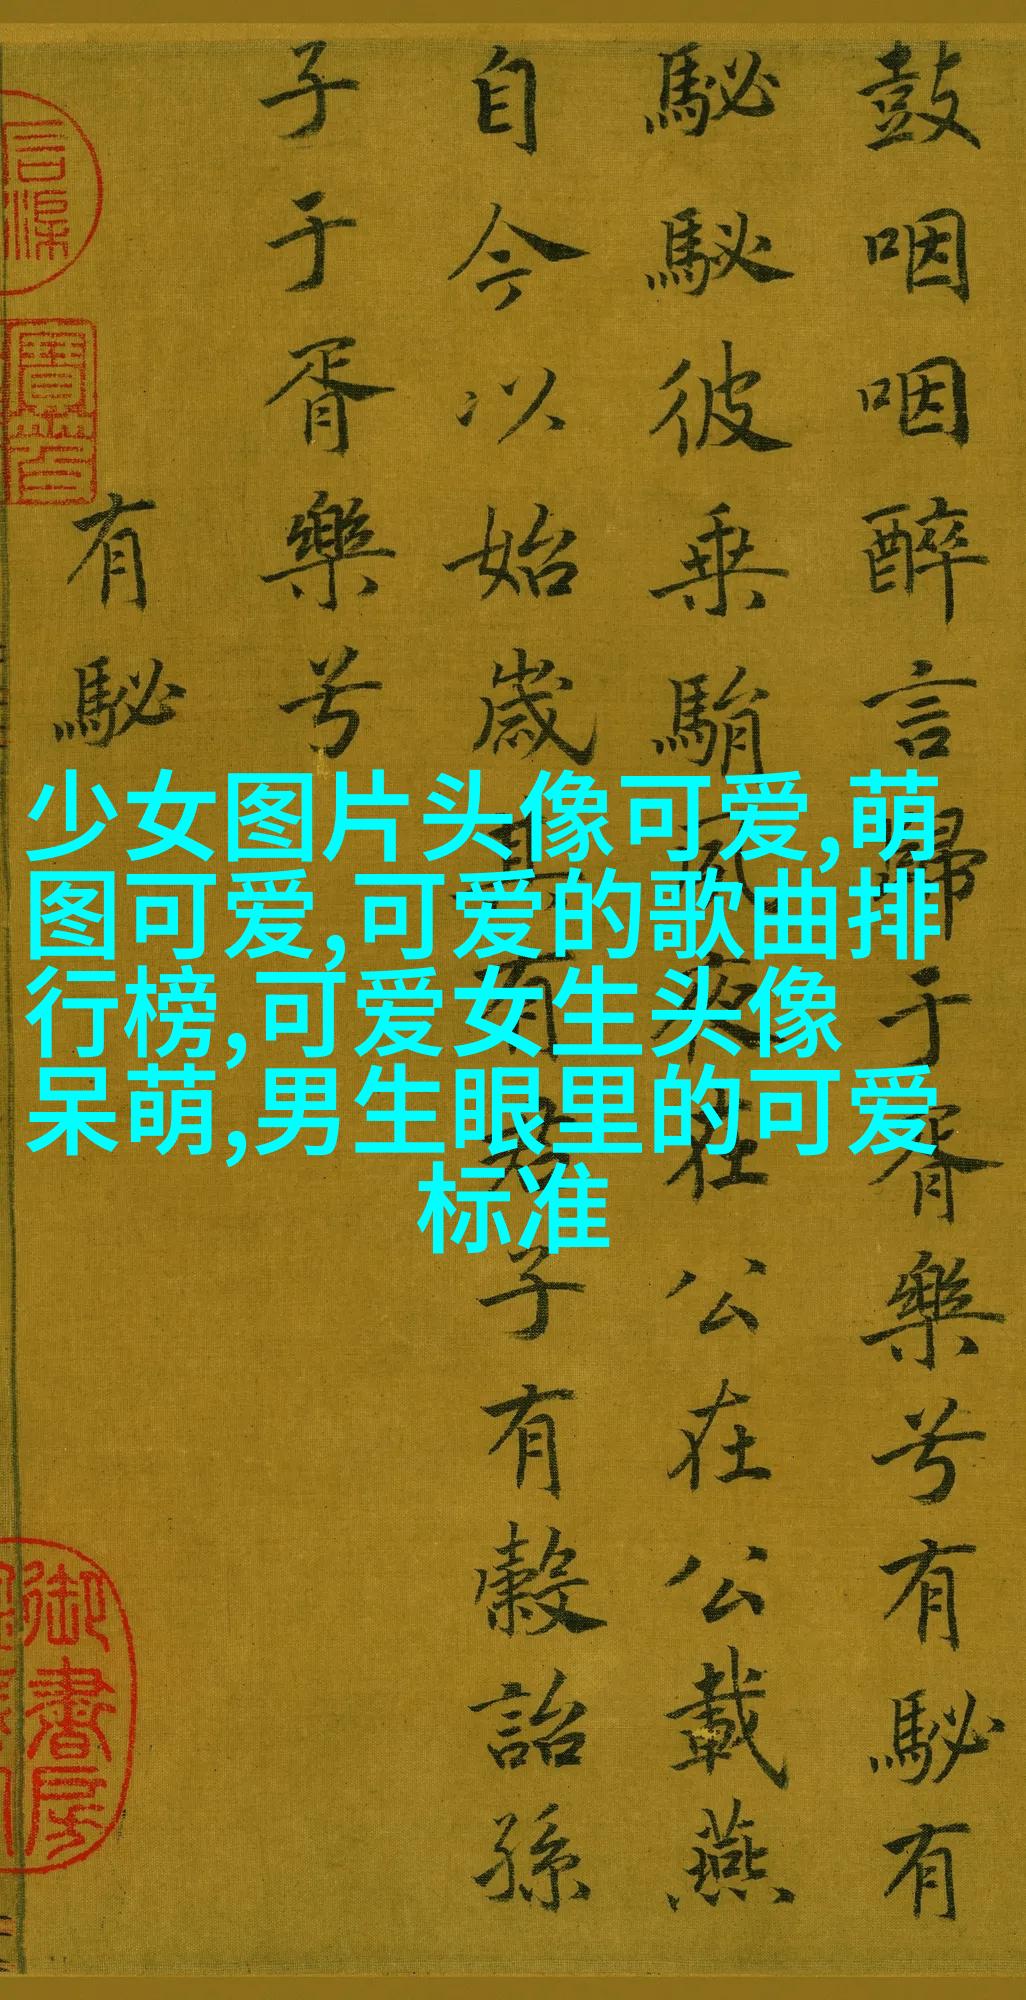 鼓咽咽醉言歸于胥樂兮有駜有
駜駜彼乗駽夙夜在公在公載燕
自今以始歲其有君子有穀詒孫
子于胥樂兮
有駜
少女图片头像可爱,萌
图可爱,可爱的歌曲排
行榜,可爱女生头像
呆萌,男生眼里的可爱
标准
御書房